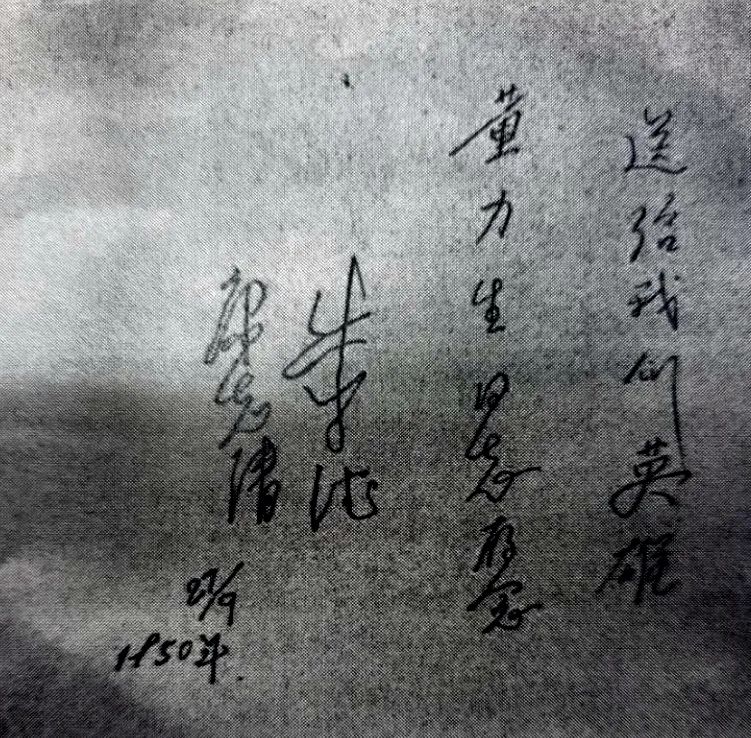 送给我们英雄
董力生同志存念
康克清
27/9
1950年